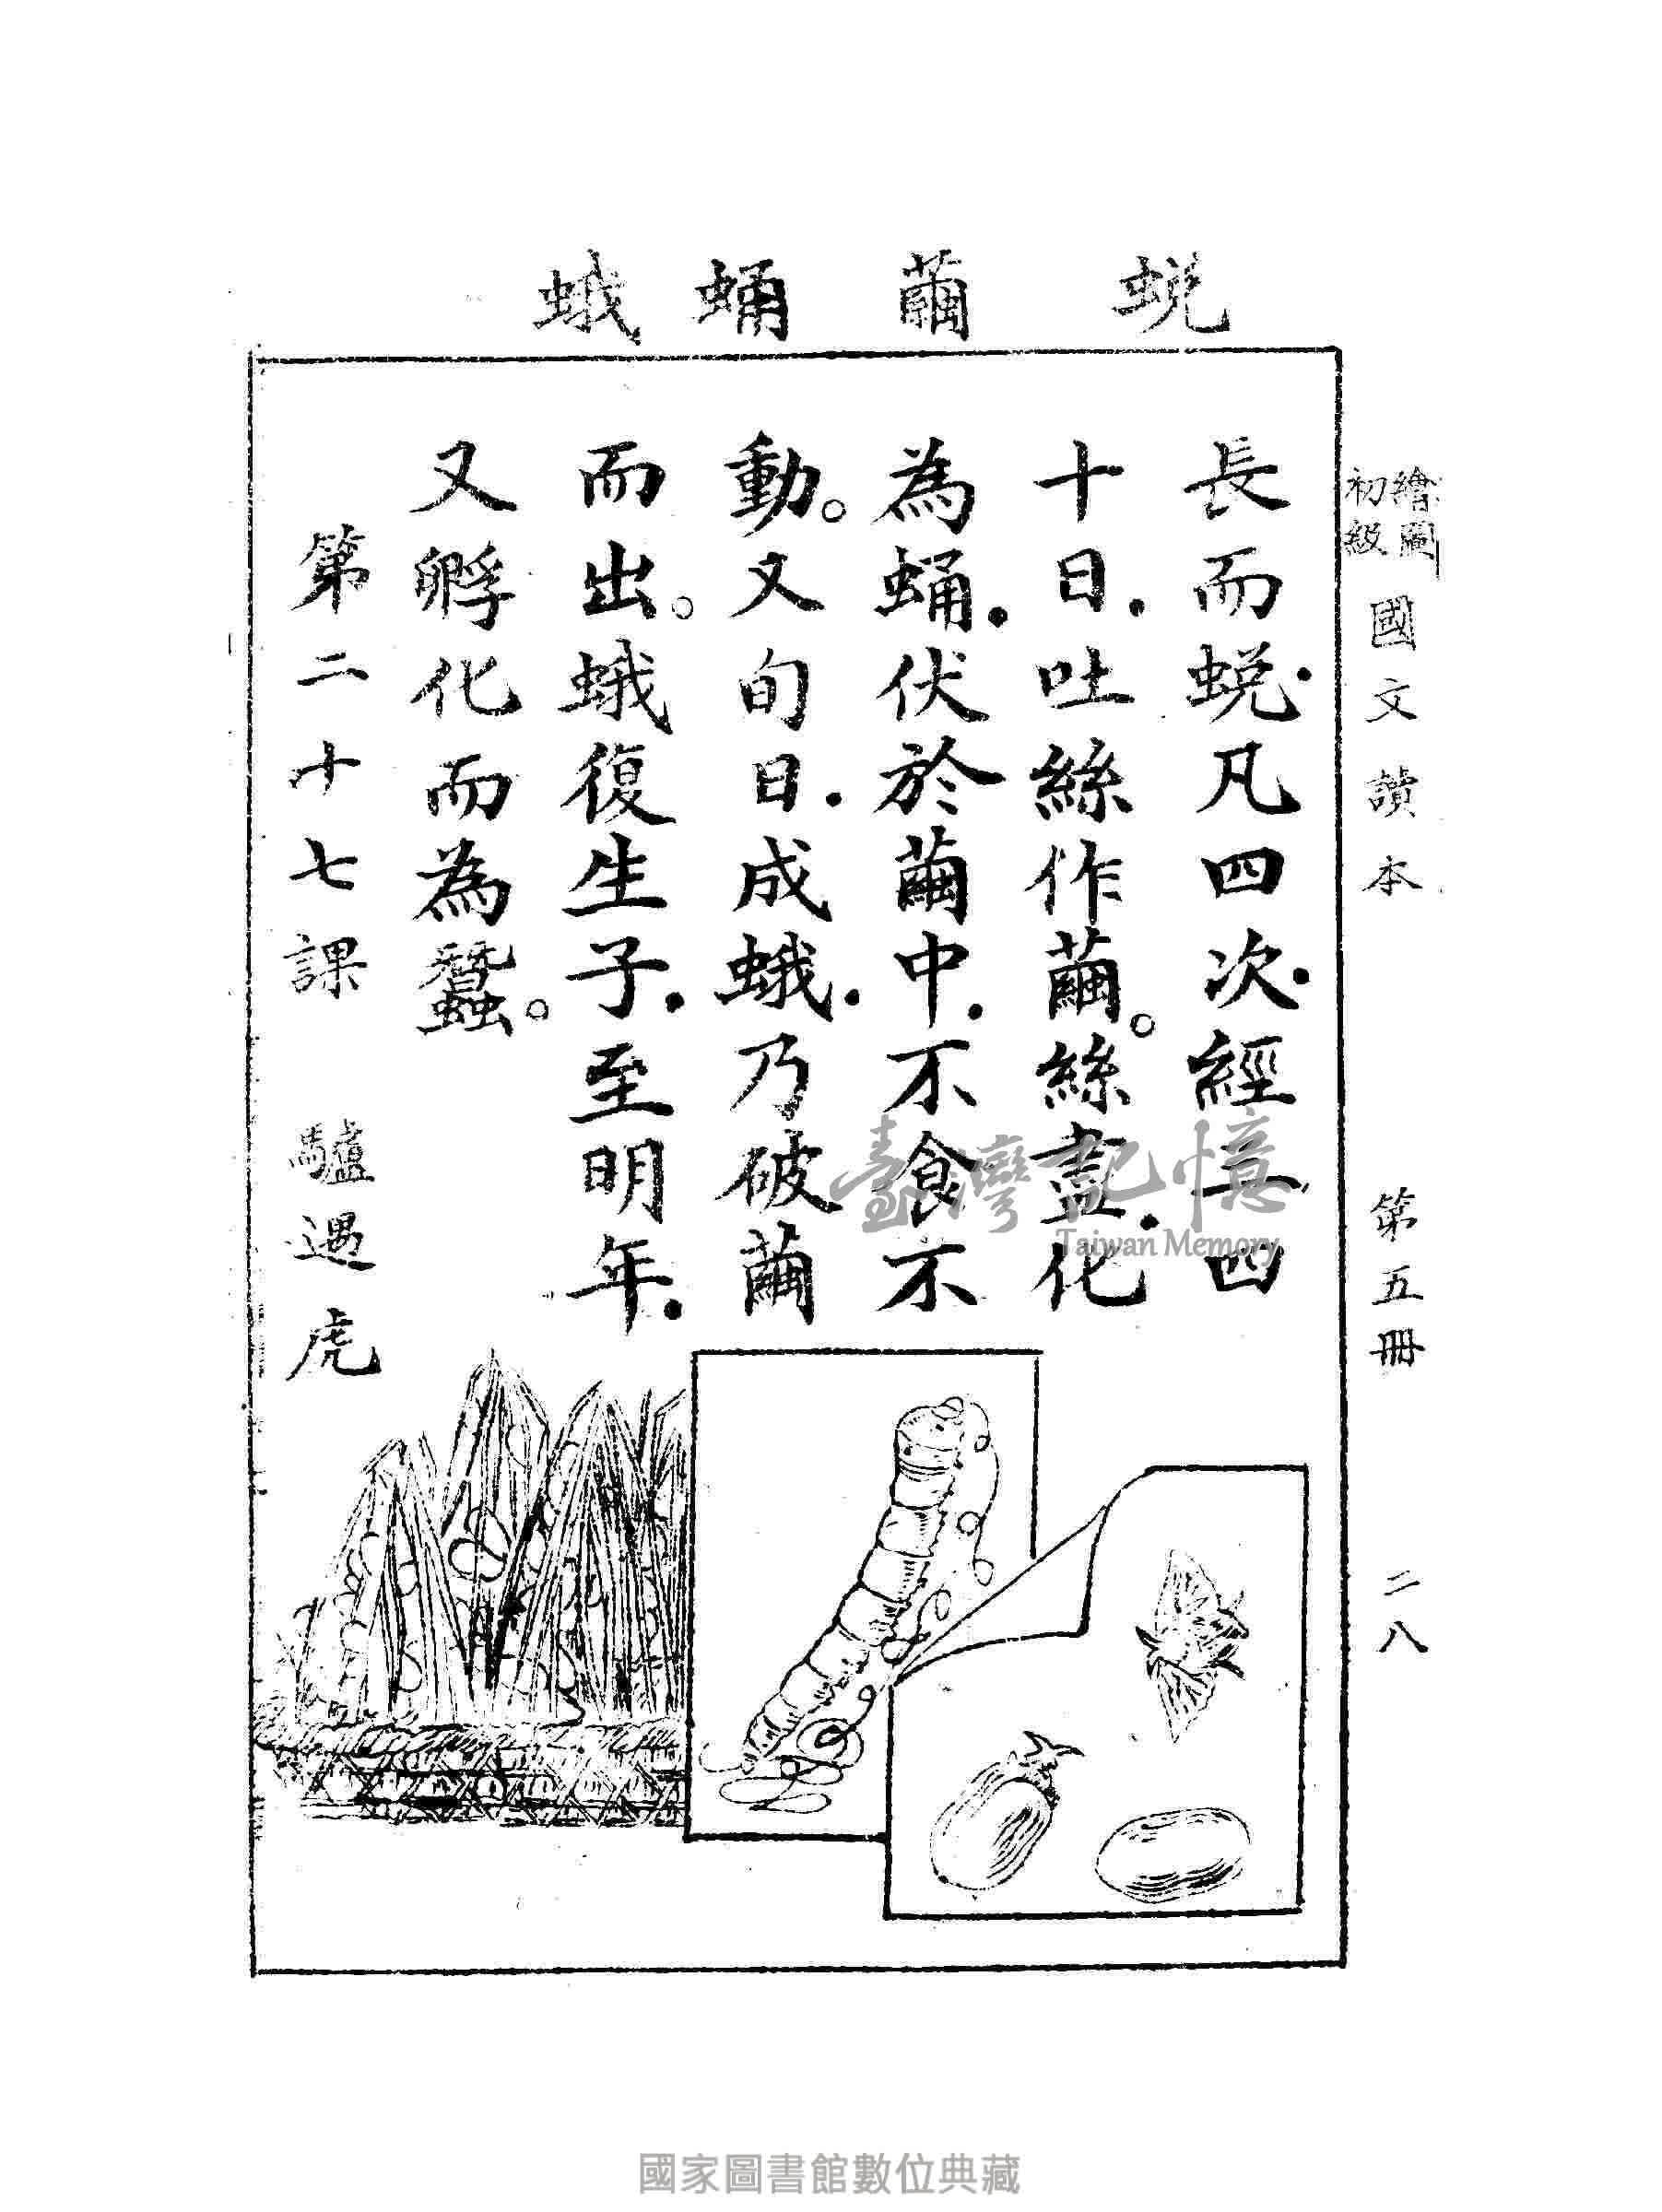 繪圖
初級
國文讀本　第五冊　二八
蛻　繭　蛹　蛾
長而蛻．凡四次．經三四
十日．吐絲作繭。絲盡．化
為蛹．伏於繭中．不食不
動。又旬日．成蛾．乃破繭
而出。蛾復生子．至明年．
又孵化而為蠶。
第二十七課　驢遇虎
臺灣記憶
Taiwan Memory
國家圖書館數位典藏